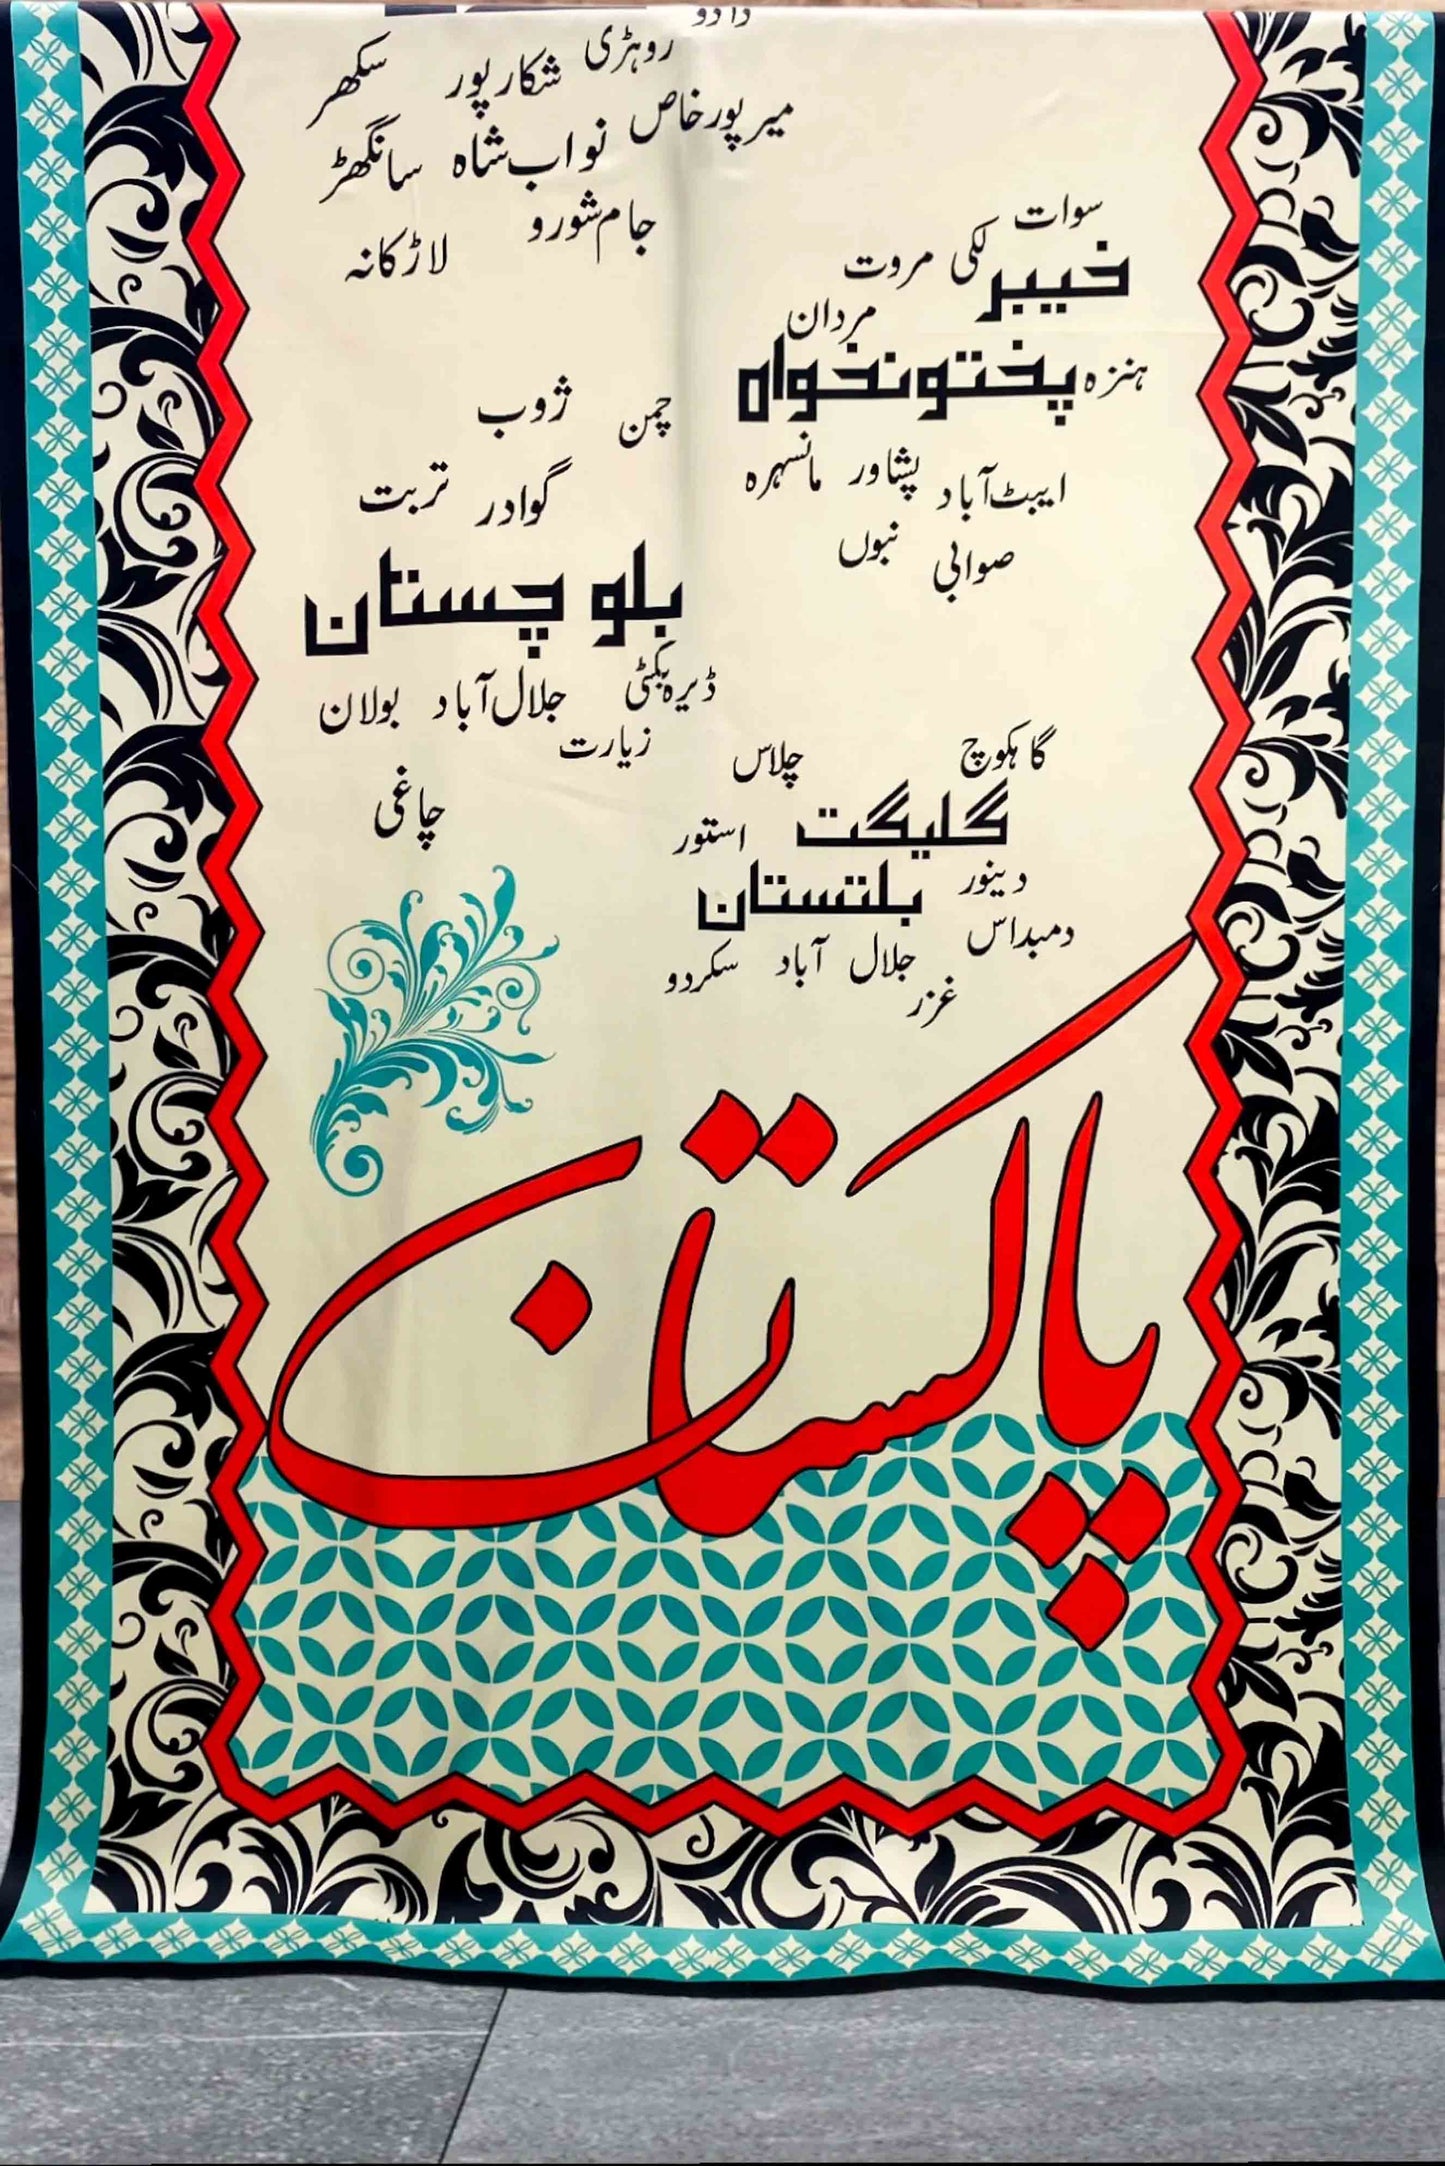 دادو
سکھر شکارپور روہڑی
میرپورخاص
سانگھڑ نواب شاہ
جام شورو
لاڑکانہ
سوات
لکی مروت
خیبر
مردان
پختونخواہ
ہنزہ
مانسہرہ پشاور ایبٹ آباد
نبوں
صوابی
ژوب
چمن
تربت
گوادر
بلوچستان
ڈیرہ بگٹی
بولان
جلال آباد
زیارت
چاغی
چلاس
گاہکوچ
گلیگت
استور
دینور
بلتستان
دمبداس
سکردو
جلال آباد
غزر
پاکستان